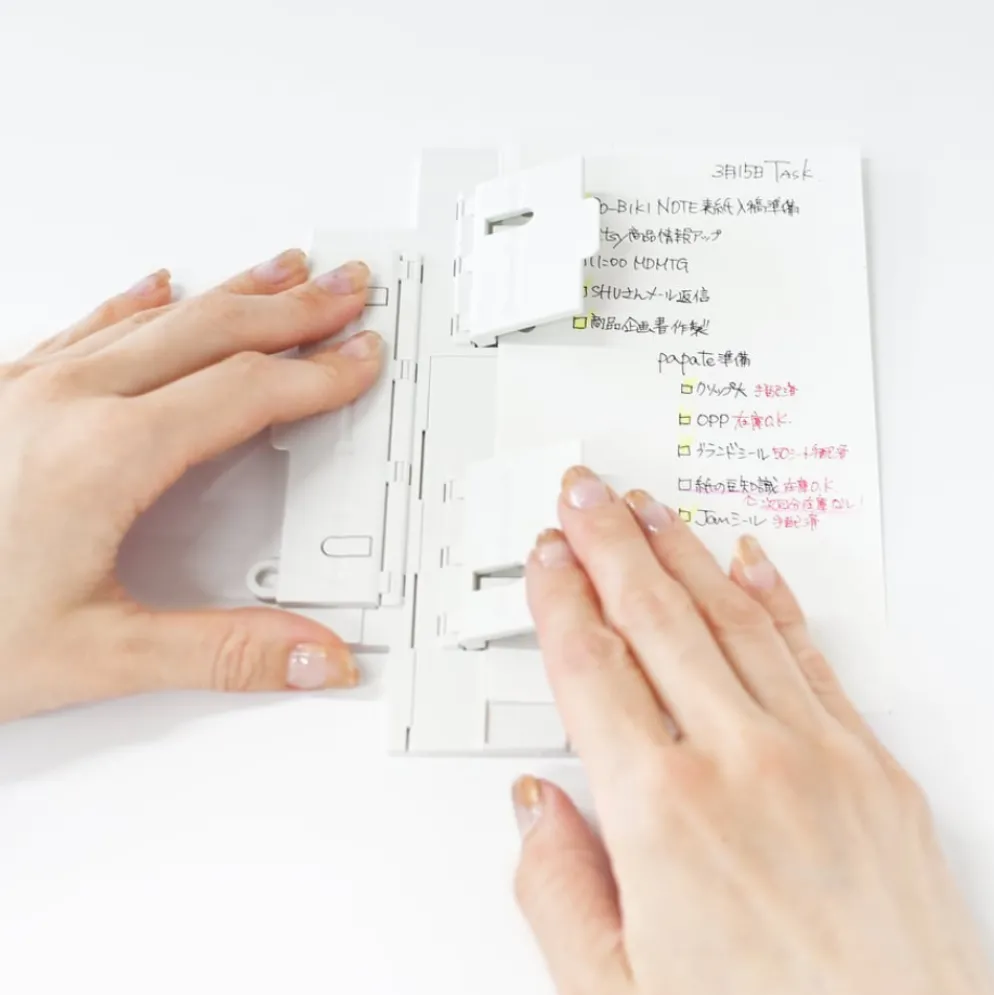 3月15日 TASK
o-BIKI NOTE 表紙入稿準備
tsy商品情報アップ
11:00 MDMTG
SHUさんメール返信
商品企画書作製
papate準備
クリップ大 手配済
OPP 在庫O.K.
グランドミール 50シート手配済
紙の豆知識 在庫O.K
次回分在庫なし!
Jamミール 手配済